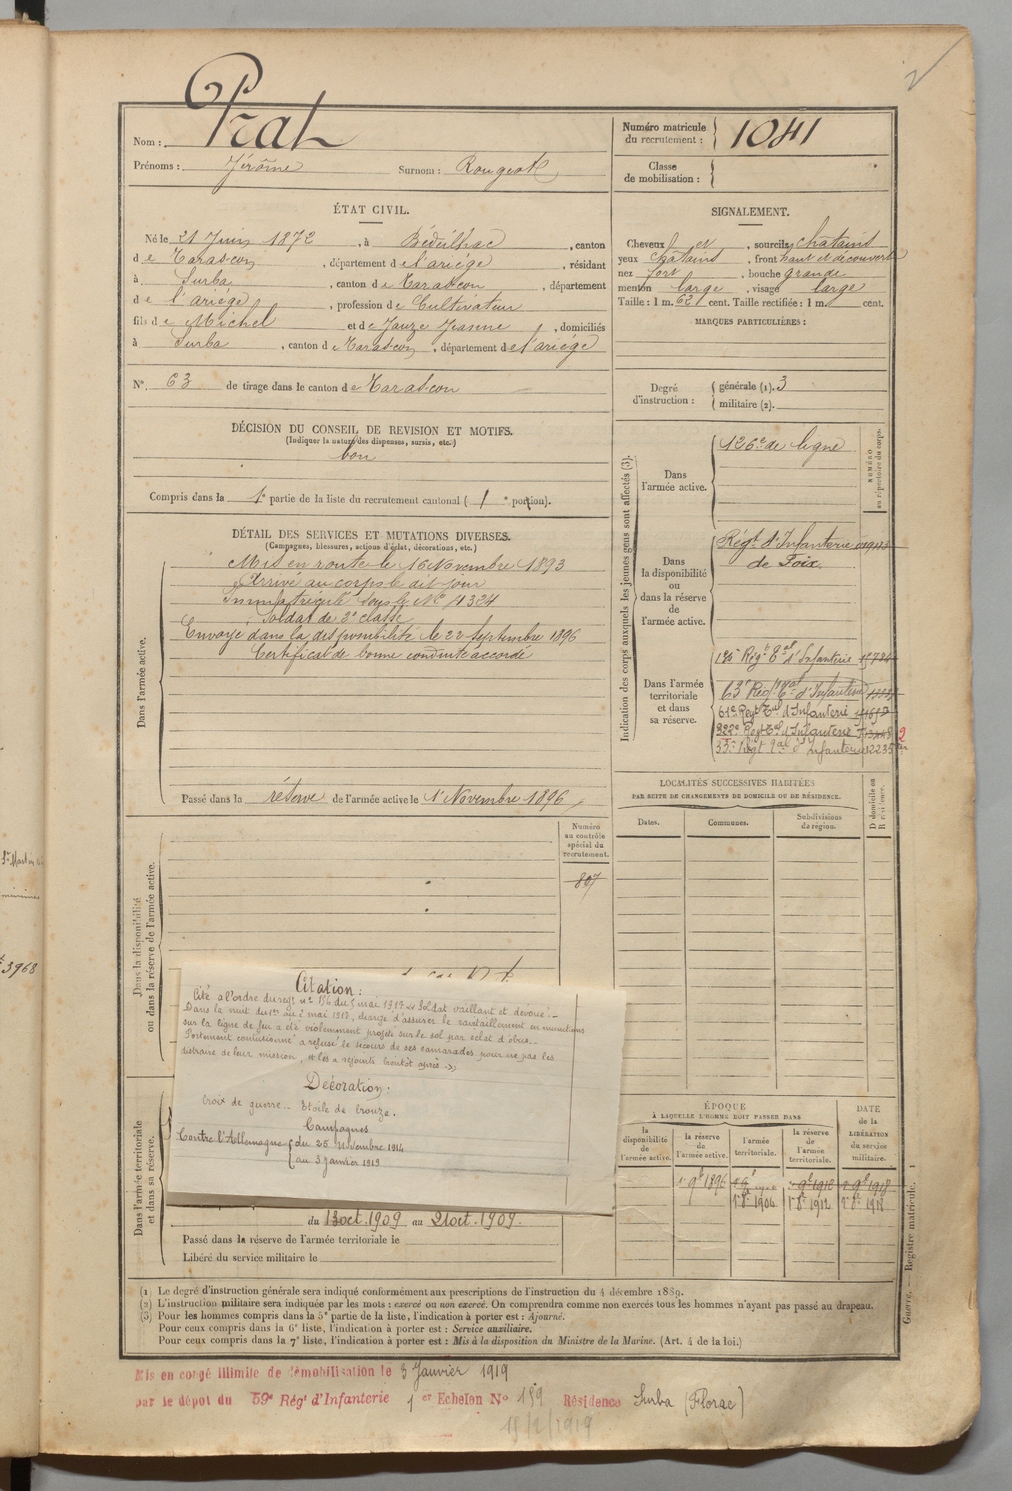 Nom : Prat
Prénoms : Jérôme Surnom :
Numéro matricule du recrutement : 1041
Classe de mobilisation :
ÉTAT CIVIL.
Né le 21 Juin 1872, à Bédeilhac, canton
de Tarascon, département de l'ariége, résidant
à Surba, canton de Tarascon, département
de l'ariége, profession de Cultivateur
fils de Michel et de Jauze Jeanne, domiciliés
à Surba, canton de Tarascon, département de l'ariége
N° 63 de tirage dans le canton de Tarascon
SIGNALEMENT.
Cheveux et , sourcils chatains
yeux chatains, front haut et découvert
nez fort, bouche grande
menton large, visage large
Taille : 1 m. 62 cent. Taille rectifiée : 1 m. cent.
MARQUES PARTICULIÈRES :
Degré d'instruction : générale (1). 3
militaire (2).
DÉCISION DU CONSEIL DE REVISION ET MOTIFS.
(Indiquer la nature des dispenses, sursis, etc.)
bon
Compris dans la 1e partie de la liste du recrutement cantonal (1e portion).
DÉTAIL DES SERVICES ET MUTATIONS DIVERSES.
(Campagnes, blessures, actions d'éclat, décorations, etc.)
Dans l'armée active.
Mis en route le 16 Novembre 1893
Arrivé au corps le dit jour
Immatriculé sous le N° 4324
Soldat de 2e classe
Envoyé dans la disponibilité le 22 Septembre 1896
Certificat de bonne conduite accordé
Passé dans la réserve de l'armée active le 1r Novembre 1896
Indication des corps auxquels les jeunes gens sont affectés (3).
NUMÉRO au répertoire du corps.
Dans l'armée active.
126e de ligne
Dans la disponibilité ou dans la réserve de l'armée active.
Régt d'Infanterie
de Foix.
Dans l'armée territoriale et dans sa réserve.
135e Régt Tal d'Infanterie
63e Régt Tal d'Infanterie
61e Regt Tal d'Infanterie
322e Regt Tal d'Infanterie
Regt Tal d'Infanterie
LOCALITÉS SUCCESSIVES HABITÉES
PAR SUITE DE CHANGEMENTS DE DOMICILE OU DE RÉSIDENCE.
Dates.
Communes.
Subdivisions de région.
D domicile ou R résidence.
Dans la disponibilité ou dans la réserve de l'armée active.
Numéro au contrôle spécial du recrutement.
807
Citation :
Cité à l'ordre du regt n° 156 du 5 mai 1917 « Soldat vaillant et dévoué. –
Dans la nuit du 1er au 2 mai 1917, chargé d'assurer le ravitaillement en munitions
sur la ligne de feu a été violemment projeté sur le sol par éclat d'obus. –
Fortement contusionné a refusé le secours de ses camarades pour ne pas les
distraire de leur mission, et les a rejoints bientôt après »
Décoration.
Croix de guerre – Etoile de bronze.
Campagnes
Contre l'Allemagne du 25 Novembre 1914
au 3 Janvier 1919
Dans l'armée territoriale et dans sa réserve.
du 13 oct. 1909 au 21 oct. 1909.
Passé dans la réserve de l'armée territoriale le
Libéré du service militaire le
ÉPOQUE
À LAQUELLE L'HOMME DOIT PASSER DANS
la disponibilité de l'armée active.
la réserve de l'armée active.
l'armée territoriale.
la réserve de l'armée territoriale.
DATE de la LIBÉRATION du service militaire.
1r 9e 1896
1r 9e 1912 1r 9e 1918
1r 8e 1906 1r 8e 1912 1r 8e 1918
Guerre. — Registre matricule. 1
(1) Le degré d'instruction générale sera indiqué conformément aux prescriptions de l'instruction du 4 décembre 1889.
(2) L'instruction militaire sera indiquée par les mots : exercé ou non exercé. On comprendra comme non exercés tous les hommes n'ayant pas passé au drapeau.
(3) Pour les hommes compris dans la 5e partie de la liste, l'indication à porter est : Ajourné.
Pour ceux compris dans la 6e liste, l'indication à porter est : Service auxiliaire.
Pour ceux compris dans la 7e liste, l'indication à porter est : Mis à la disposition du Ministre de la Marine. (Art. 4 de la loi.)
Mis en congé illimité de démobilisation le 3 Janvier 1919
par le dépôt du 59e Régt d'Infanterie 1er Echelon N° 159 Résidence Surba (Florac)
15/2/1919
3968